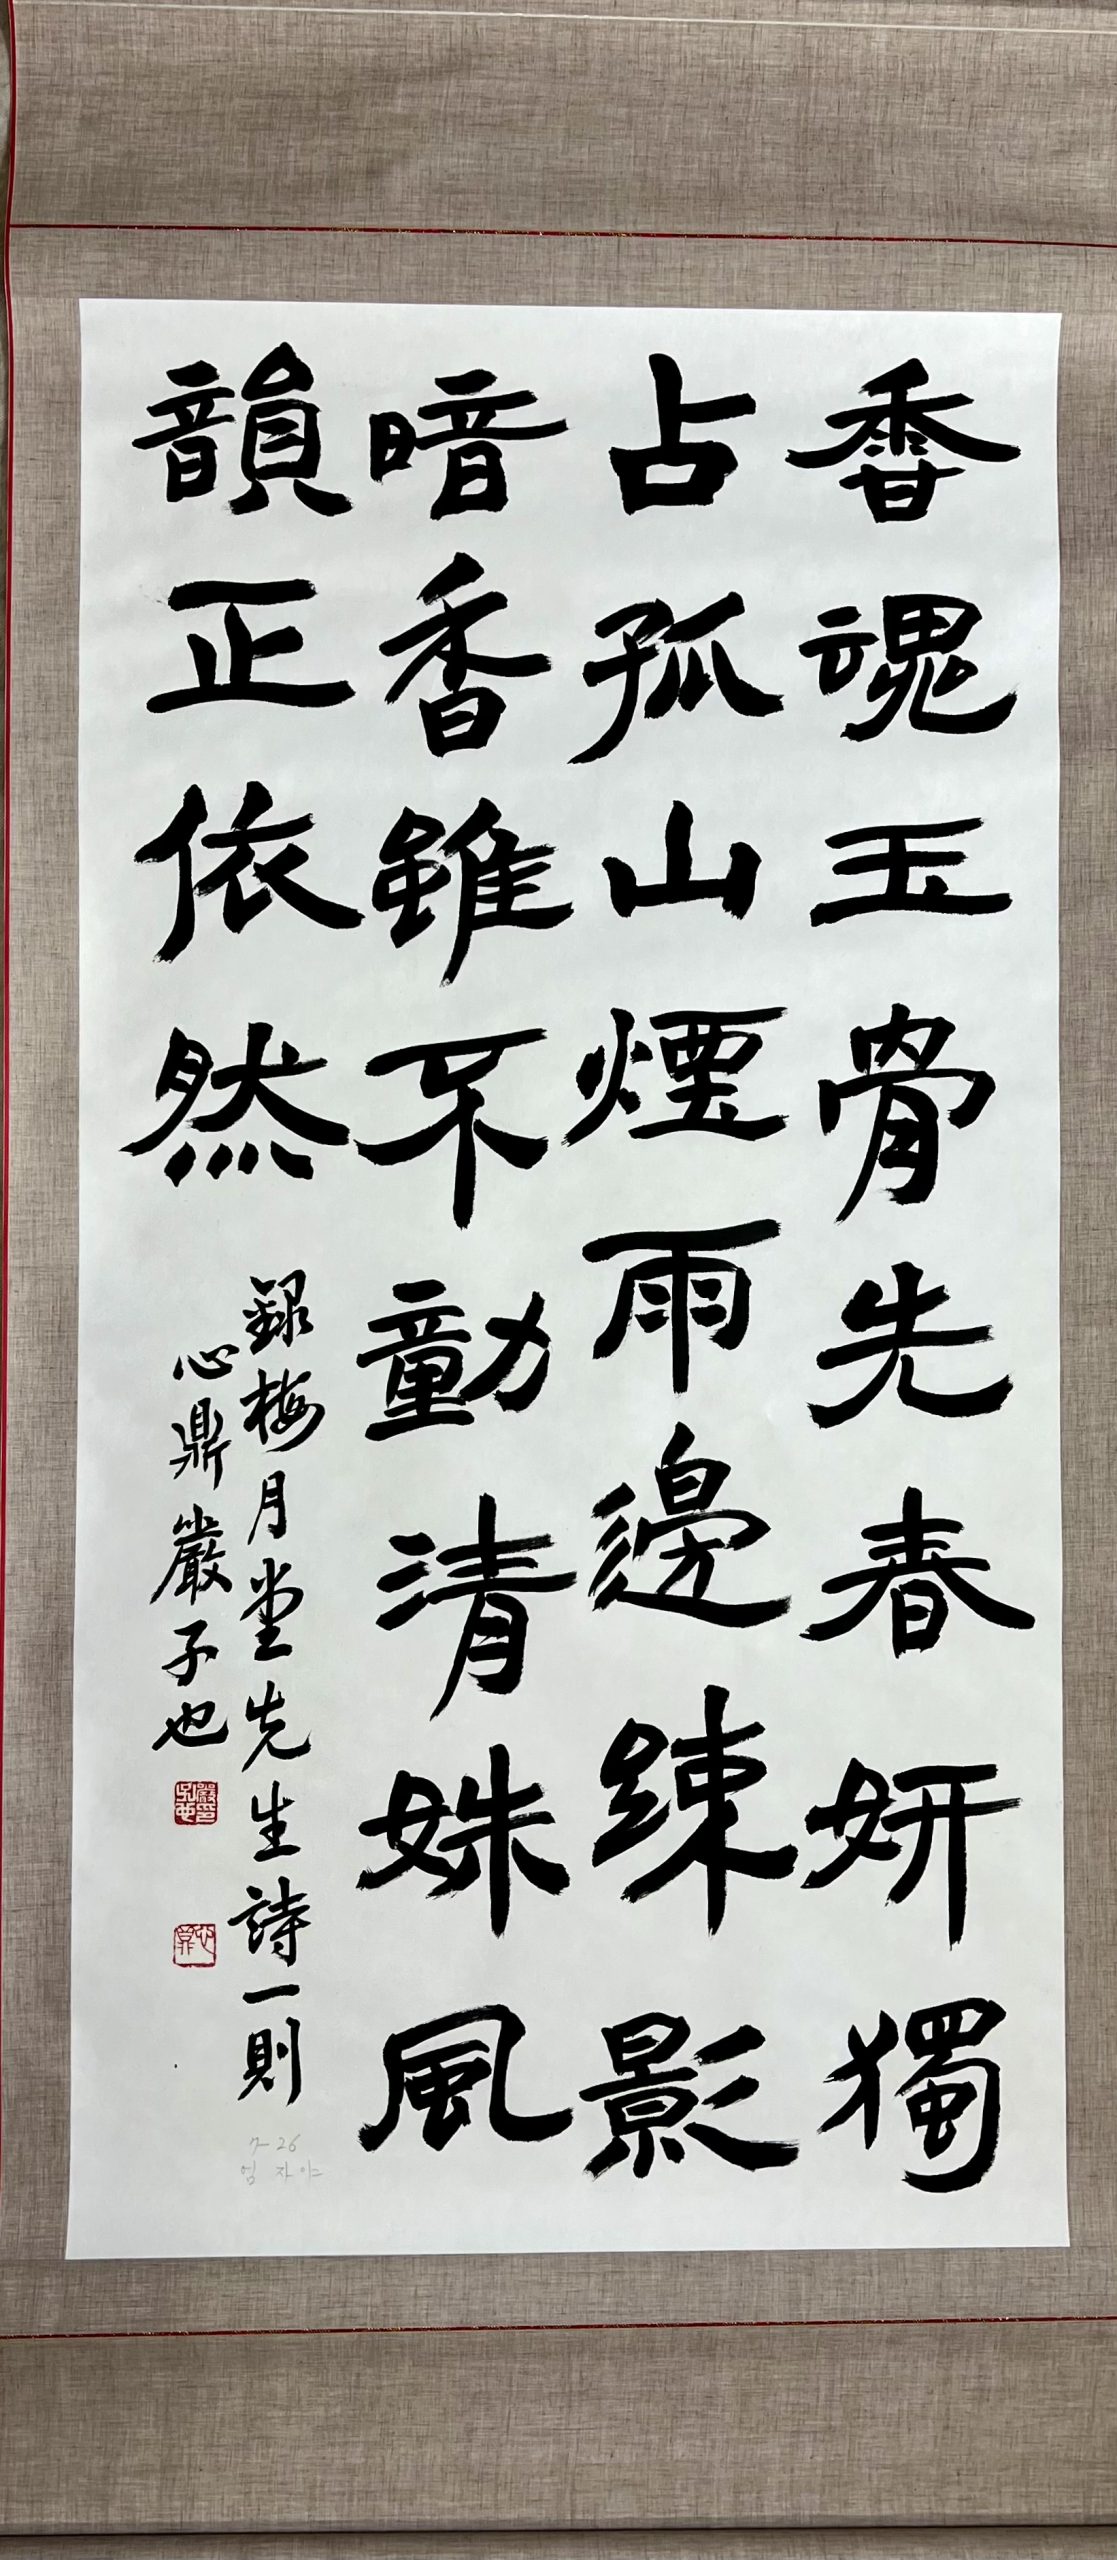 香魂玉骨先春妍獨
占孤山煙雨邊練影
暗香雖不動清姝風
韻正依然
錄梅月堂先生詩一則
心鼎嚴子也
7-26
엄자야